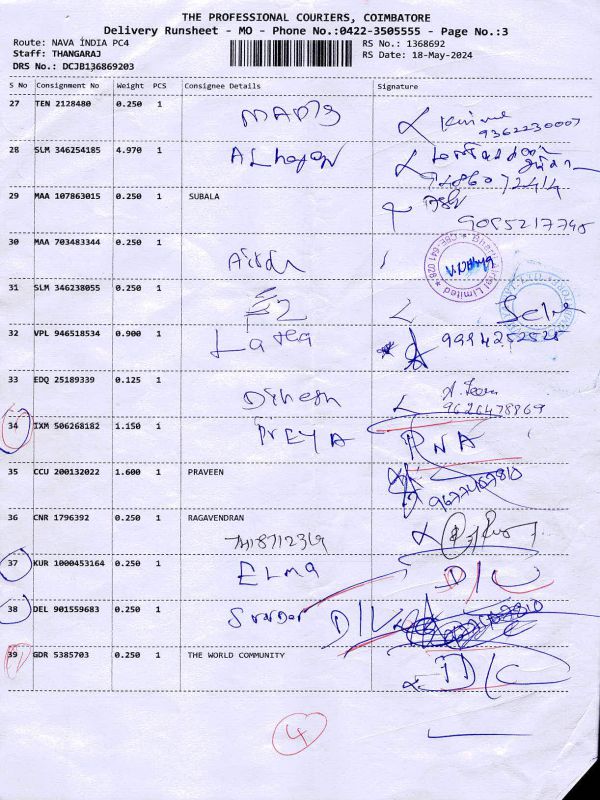 THE PROFESSIONAL COURIERS, COIMBATORE
Delivery Runsheet - MO - Phone No.:0422-3505555 - Page No.:3
Route: NAVA INDIA PC4
RS No.: 1368692
Staff: THANGARAJ
RS Date: 18-May-2024
DRS No.: DCJB136869203
S No Consignment No Weight PCS Consignee Details Signature
27 TEN 2128480 0.250 1
9362230007
28 SLM 346254185 4.970 1
29 MAA 107863015 0.250 1 SUBALA
9095217745
30 MAA 703483344 0.250 1
31 SLM 346238055 0.250 1
32 VPL 946518534 0.900 1 Latha
9994252525
33 EDQ 25189339 0.125 1 Dinesh
9626478869
34 IXM 506268182 1.150 1 PREYA RNA
35 CCU 200132022 1.600 1 PRAVEEN
36 CNR 1796392 0.250 1 RAGAVENDRAN
37 KUR 1000453164 0.250 1 ELMA D/C
38 DEL 901559683 0.250 1
39 GDR 5385703 0.250 1 THE WORLD COMMUNITY D/C
4